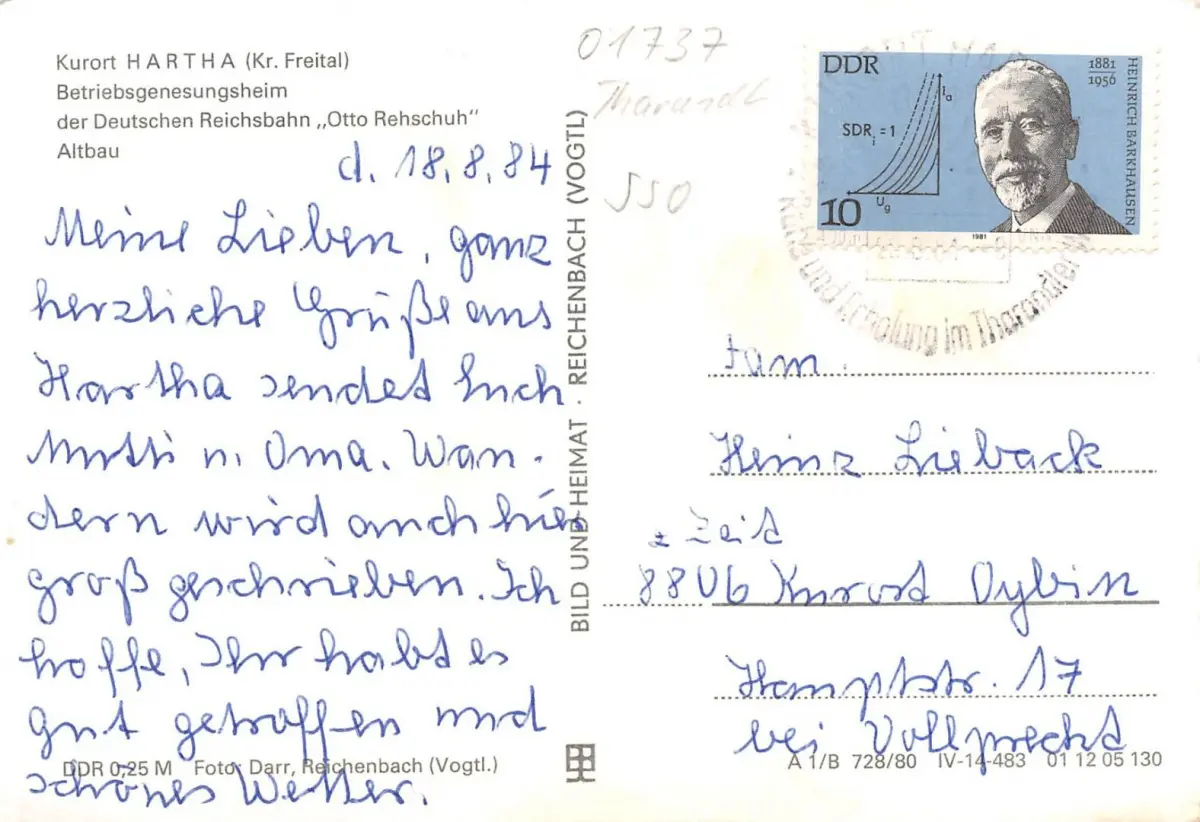 Kurort HARTHA (Kr. Freital)
Betriebsgenesungsheim
der Deutschen Reichsbahn „Otto Rehschuh"
Altbau
d. 18.8.84
Meine Lieben, ganz
herzliche Grüße aus
Hartha sendet Euch
Mutti u. Oma. Wan-
dern wird auch hier
groß geschrieben. Ich
hoffe, Ihr habt es
gut getroffen und
schönes Wetter.
DDR 0,25 M Foto: Darr, Reichenbach (Vogtl.)
BILD UND HEIMAT · REICHENBACH (VOGTL)
01737
Tharandt
550
DDR
SDRi = 1
Ia
Ug
10
1881
1956
HEINRICH BARKHAUSEN
1981
Kurz und Erholung im Tharandter
Fam.
Heinz Lieback
z Zeit
8806 Kurort Oybin
Hauptstr. 17
bei Vollprecht
A 1/B 728/80 IV-14-483 01 12 05 130